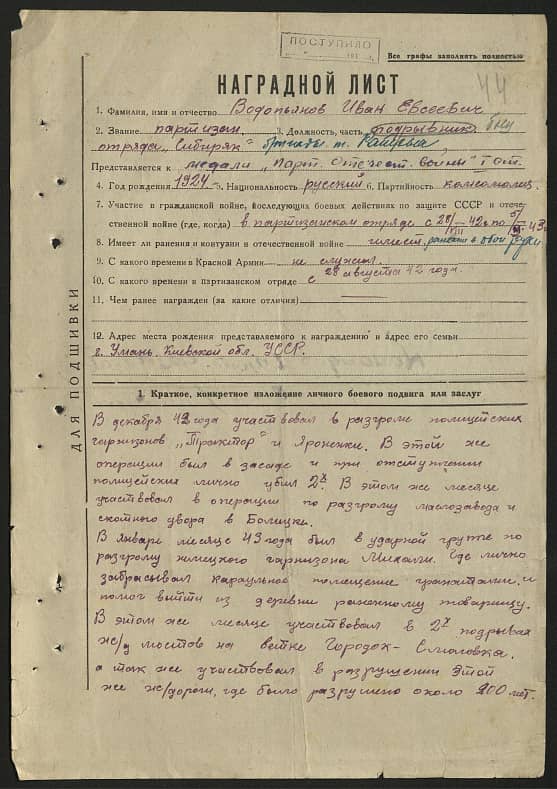 ПОСТУПИЛО
Все графы заполнять полностью
44
НАГРАДНОЙ ЛИСТ
1. Фамилия, имя и отчество Водопьянов Иван Евсеевич
2. Звание партизан 3. Должность, часть подрывник боец
отряда „Сибиряк" бригады т.
Представляется к медали „Парт. Отечест. войны" I ст.
4. Год рождения 1924 5. Национальность русский 6. Партийность комсомолец
7. Участие в гражданской войне, последующих боевых действиях по защите СССР и отече-
ственной войне (где, когда) в партизанском отряде с 28/VIII-42г. по
8. Имеет ли ранения и контузии в отечественной войне имеет, ранен в обе руки
9. С какого времени в Красной Армии не служил.
10. С какого времени в партизанском отряде с 28 августа 42 года.
11. Чем ранее награжден (за какие отличия)
12. Адрес места рождения представляемого к награждению и адрес его семьи
г. Умань, Киевской обл. УССР.
ДЛЯ ПОДШИВКИ
1. Краткое, конкретное изложение личного боевого подвига или заслуг
В декабре 42 года участвовал в разгроме полицейских
гарнизонов „Трактор" и Яронки. В этой же
операции был в засаде и при отступлении
полицейских лично убил 2х. В этом же месяце
участвовал в операции по разгрому маслозавода и
скотного двора в
В январе месяце 43 года был в ударной группе по
разгрому немецкого гарнизона Михали. Где лично
забрасывал караульное помещение гранатами, и
помог выйти из деревни раненному товарищу.
В этом же месяце участвовал в 2х подрывах
ж/д мостов на ветке Городок-
а так же участвовал в разрушении этой
же ж/дороги, где было разрушено около 200 мет.